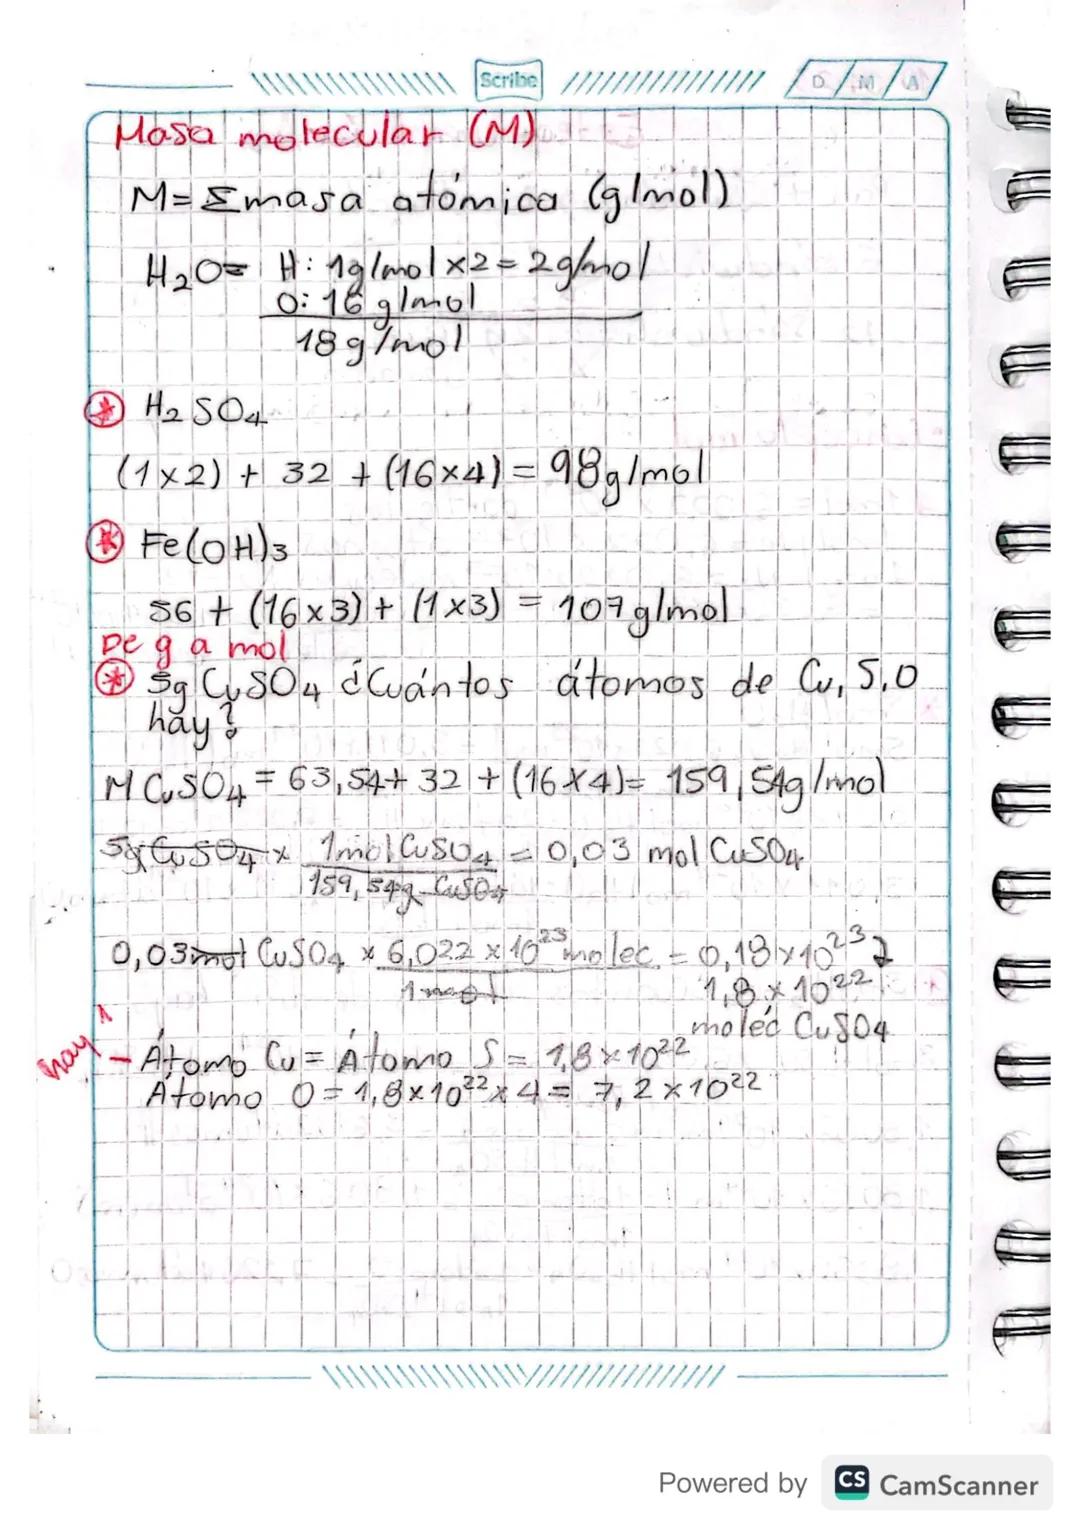 Scribe
D M A
Masa molecular (M)
M= Σmasa atómica (g/mol)
H₂O= H: 1g/mol x2 = 2g/mol
O: 16 g/mol
18 g/mol
H₂SO₄
(1x2) + 32 + (16x4) = 98g/mol
Fe(OH)₃
56 + (16x3) + (1x3) = 107g/mol
De g a mol
5g CuSO₄ ¿Cuántos átomos de Cu, S, O
hay?
M CuSO₄ = 63,54+ 32 + (16x4)= 159,54g/mol
5g CuSO₄ x 1mol CuSO₄ = 0,03 mol CuSO₄
159,54g CuSO₄
0,03mol CuSO₄ x 6,022 x 10²³ molec. = 0,18x10²³
1 mol 1,8 x 10²²
molec CuSO₄
hay - Átomo Cu = Átomo S = 1,8 x 10²²
Átomo O = 1,8x10²² x 4 = 7,2x10²²
Powered by CS CamScanner